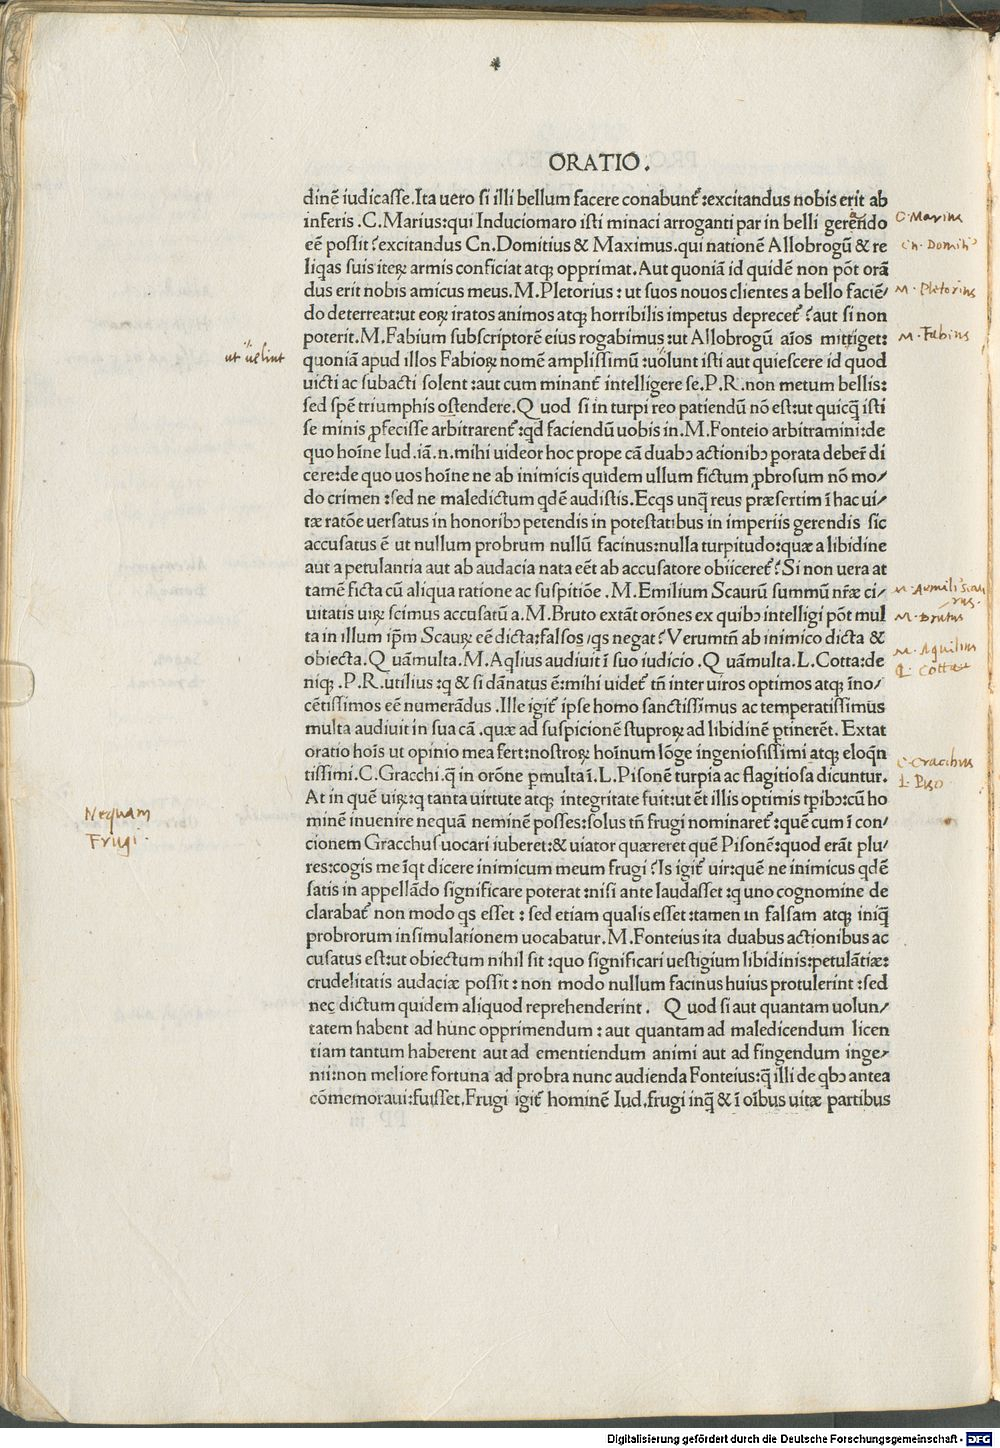 ORATIO.
dinē iudicasse. Ita uero si illi bellum facere conabunt᷑:excitandus nobis erit ab
inferis .C.Marius:qui Induciomaro isti minaci arroganti par in belli gerēndo
eē possit?excitandus Cn.Domitius & Maximus.qui nationē Allobrogū & re
liq̄as suis iteꝝ armis conficiat atqꝫ opprimat. Aut quoniā id quidē non pōt orā
dus erit nobis amicus meus. M.Pletorius : ut suos nouos clientes a bello faciē/
do deterreat:ut eoꝝ iratos animos atqꝫ horribilis impetus deprecet᷑?aut si non
poterit. M.Fabium subscriptorē eius rogabimus :ut Allobrogū aīos mittiget:
quoniā apud illos Fabioꝝ nomē amplissimū :uolunt isti aut quiescere id quod
uicti ac subacti solent :aut cum minant᷑ intelligere se.P.R.non metum bellis:
sed spē triumphis ostendere. Q uod si in turpi reo patiendū nō est:ut quicq̄ isti
se minis ꝓfecisse arbitrarent᷑ :qd faciendū uobis in.M.Fonteio arbitramini:de
quo hoīne Iud.iā.n.mihi uideor hoc prope cā duabꝰ actionibꝰ porata deber̄ di
cere:de quo uos hoīne ne ab inimicis quidem ullum fictum ꝓbrosum nō mo/
do crimen :sed ne maledictum qdē audistis. Ecqs unq̄ reus præsertim ī hac ui/
tæ ratōe uersatus in honoribꝰ petendis in potestatibus in imperiis gerendis sic
accusatus ē ut nullum probrum nullū facinus:nulla turpitudo:quæ a libidine
aut a petulantia aut ab audacia nata eēt ab accusatore obiiceret᷑?Si non uera at
tamē ficta cū aliqua ratione ac suspitiōe .M.Emilium Scaurū summū nr̄æ ci/
uitatis uiꝝ scimus accusatū a.M.Bruto extāt orōnes ex quibꝰ intelligi pōt mul
ta in illum ip̄m Scauꝝ eē dicta:falsos iq̄s negat?Verumtn̄ ab inimico dicta &
obiecta. Q uāmulta.M.Aqlius audiuit ī suo iudicio .Q uāmulta.L.Cotta:de
niqꝫ .P.R.utilius :q & si dānatus ē:mihi uidet᷑ tn̄ inter uiros optimos atqꝫ īno/
cētissimos eē numerādus .Ille igit᷑ ipse homo sanctissimus ac temperatissimus
multa audiuit in sua cā .quæ ad suspicionē stuproꝝ ad libidinē ꝑtinerēt. Extat
oratio hoīs ut opinio mea fert:nostroꝝ hoīnum lōge ingeniosissimi atqꝫ eloq̄n
tissimi.C.Gracchi.q̄ in orōne ꝑmulta ī.L.Pisonē turpia ac flagitiosa dicuntur.
At in quē uiꝝ:q tanta uirtute atqꝫ integritate fuit:ut ēt illis optimis tꝑibꝰ:cū ho
minē inuenire nequā neminē posses:solus tn̄ frugi nominaret᷑ :quē cum ī con/
cionem Gracchus uocari iuberet:& uiator quæreret quē Pisonē:quod erāt plu/
res:cogis me īqt dicere inimicum meum frugi?Is igit᷑ uir:quē ne inimicus qdē
satis in appellādo significare poterat :nisi ante laudasset :q uno cognomine de
clarabat᷑ non modo qs esset : sed etiam qualis esset :tamen in falsam atqꝫ iniq̄
probrorum insimulationem uocabatur.M.Fonteius ita duabus actionibus ac
cusatus est:ut obiectum nihil sit :quo significari uestigium libidinis:petulātiæ:
crudelitatis audaciæ possit : non modo nullum facinus huius protulerint :sed
nec dictum quidem aliquod reprehenderint . Q uod si aut quantam uolun/
tatem habent ad hunc opprimendum : aut quantam ad maledicendum licen
tiam tantum haberent aut ad ementiendum animi aut ad fingendum inge/
nii:non meliore fortuna ad probra nunc audienda Fonteius:q̄ illi de qbꝰ antea
cōmemoraui:fuisset.Frugi igit᷑ hominē Iud.frugi inq̄ & ī oībus uitæ partibus
C. Marius
Cn. Domiti⁹
M. Pletorius
M. Fabius
ut uelint
M. Aemili⁹ Scau
rus.
M. Brutus
M. Aquilius
L. Cotta
C. Gracchus
L. Piso
Nequam
Frugi.
Digitalisierung gefördert durch die Deutsche Forschungsgemeinschaft - DFG